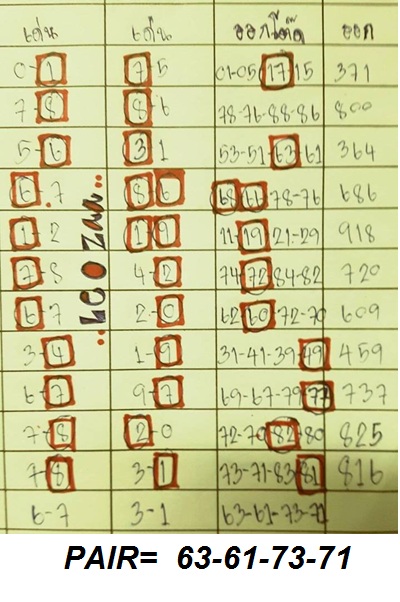 เด่น เด่น ออกโต๊ด ออก
0-1 7-5 01-05-17-15 371
7-8 8-6 78-76-88-86 800
5-6 3-1 53-51-63-61 364
6-7 8-6 68-66-78-76 686
1-2 1-9 11-19-21-29 918
7-8 4-2 74-72-84-82 720
6-7 2-0 62-60-72-70 609
3-4 1-9 31-41-39-49 459
6-7 9-7 69-67-79-77 737
7-8 2-0 72-70-82-80 825
7-8 3-1 73-71-83-81 816
6-7 3-1 63-61-73-71
..Leo Zaa..
PAIR= 63-61-73-71